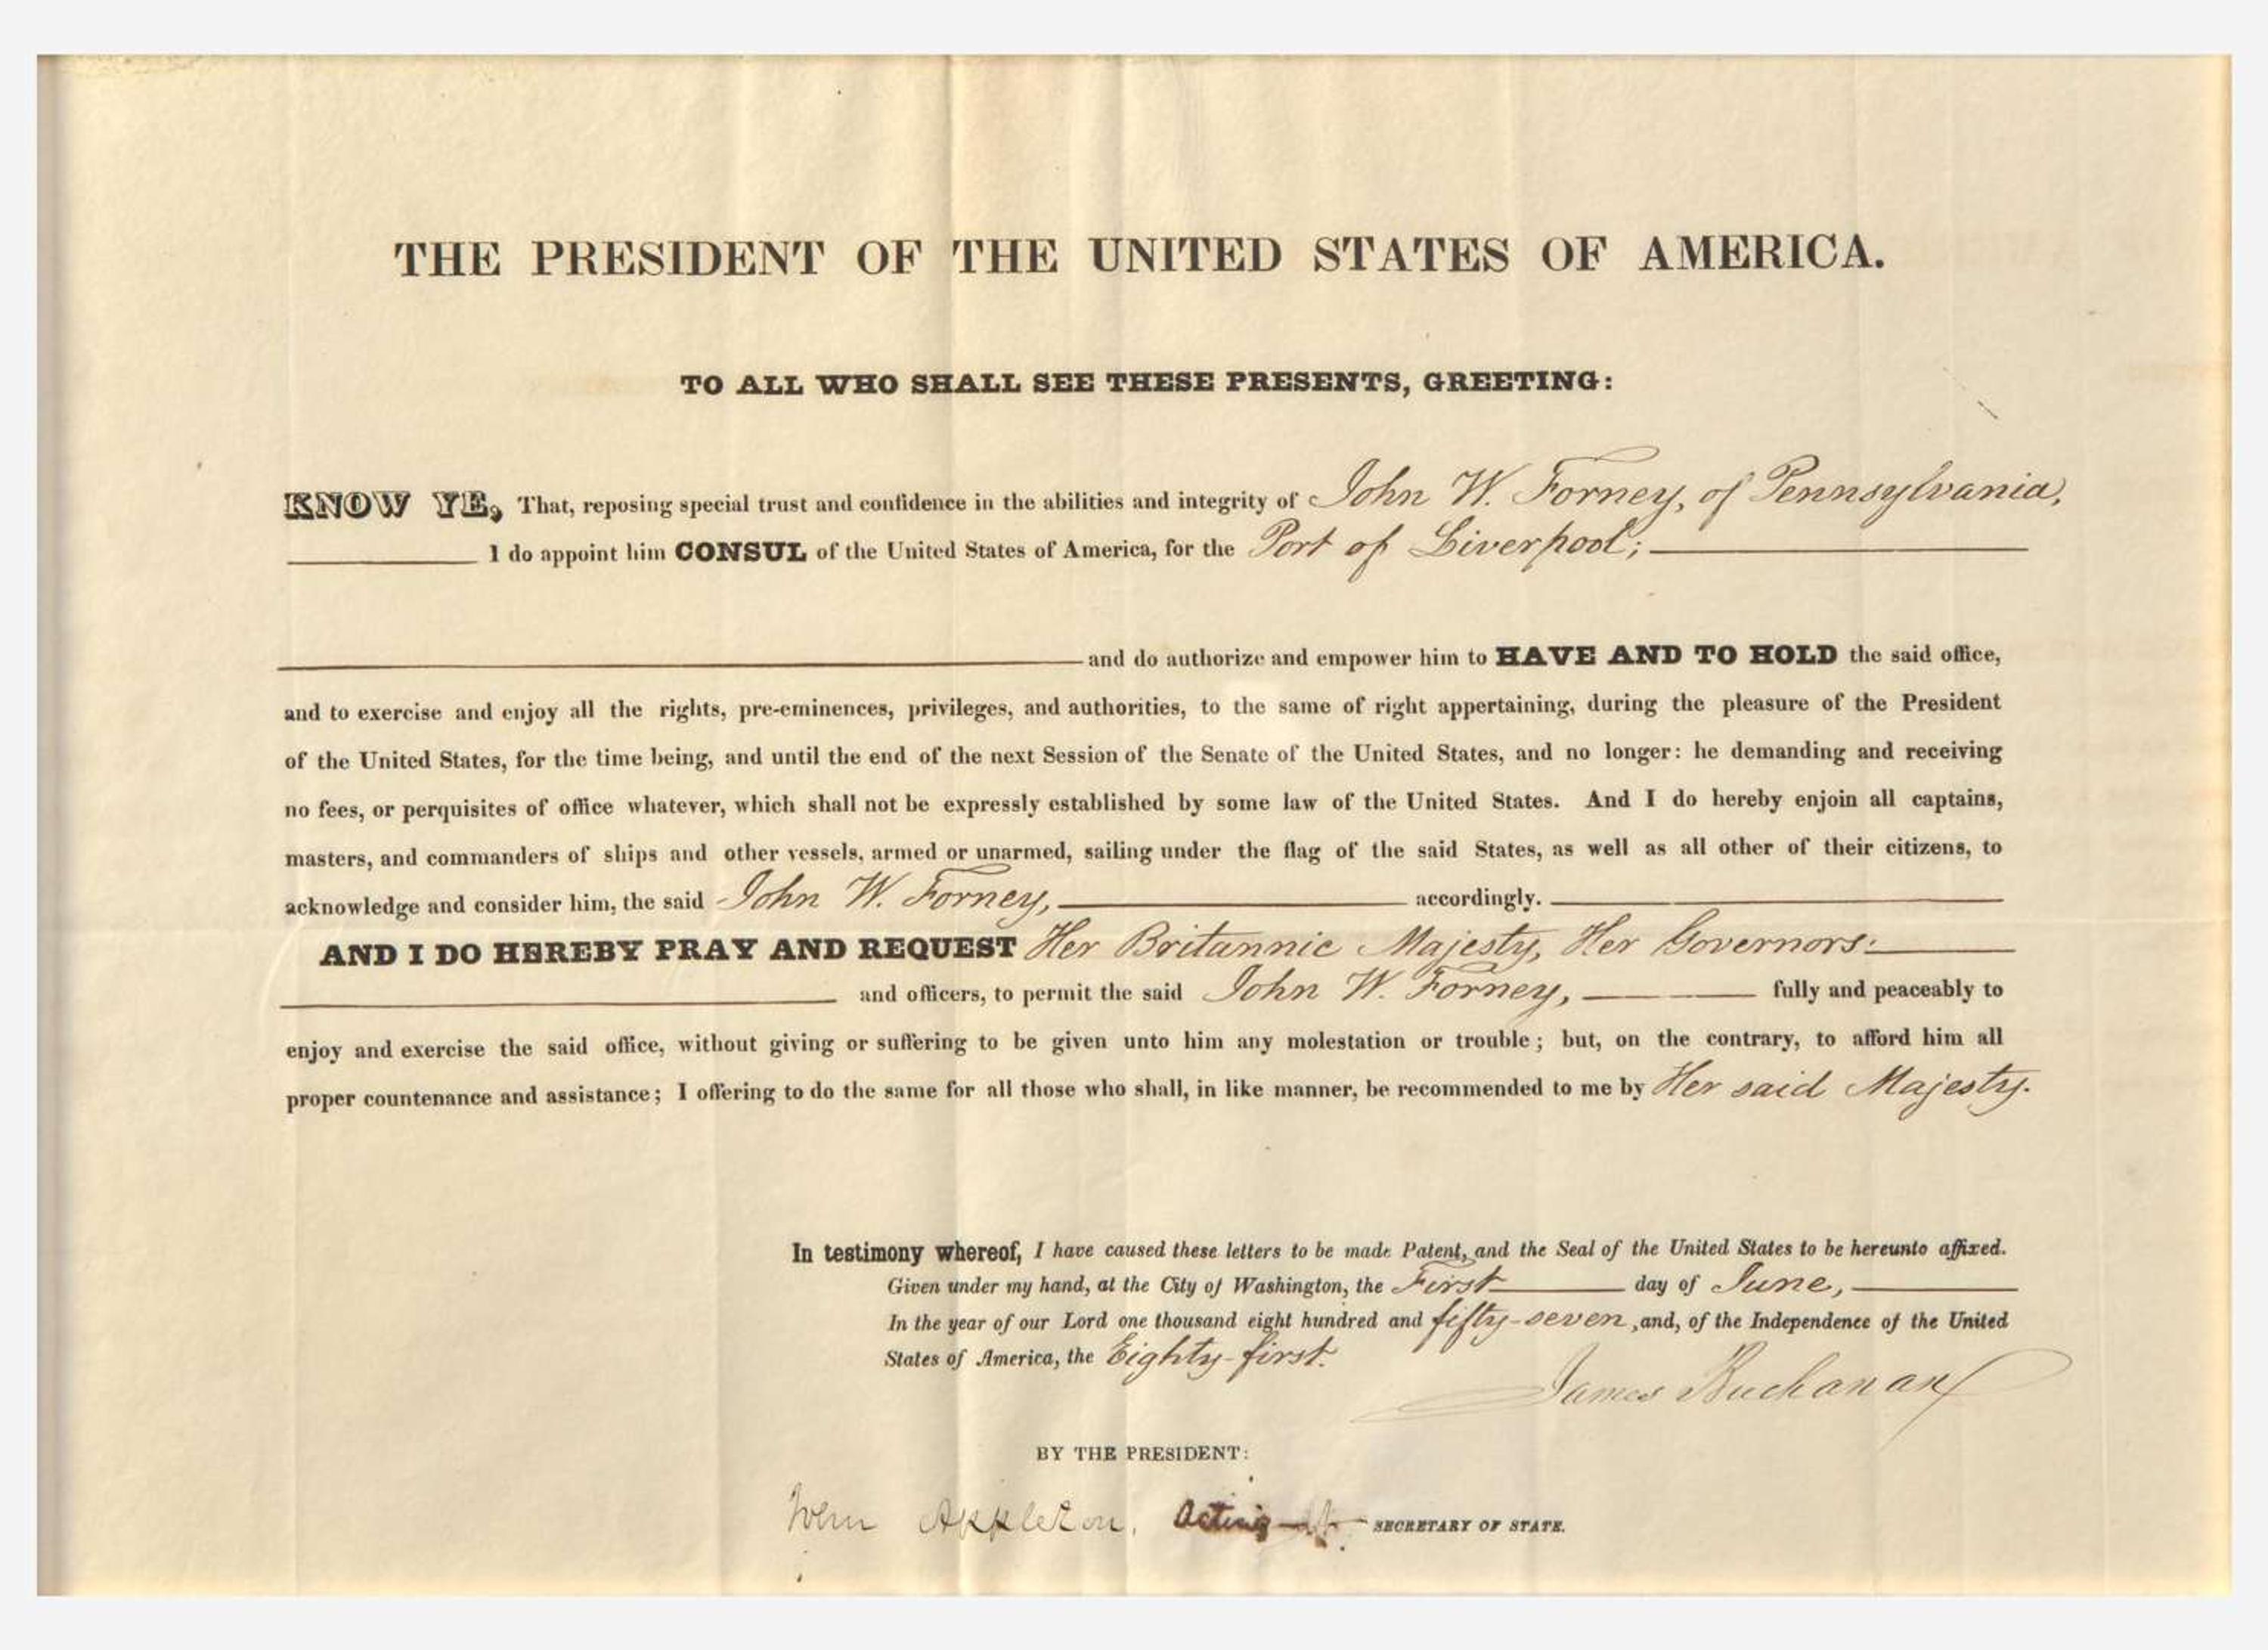 THE PRESIDENT OF THE UNITED STATES OF AMERICA.
TO ALL WHO SHALL SEE THESE PRESENTS, GREETING:
KNOW YE, That, reposing special trust and confidence in the abilities and integrity of John W. Forney, of Pennsylvania,
I do appoint him CONSUL of the United States of America, for the Port of Liverpool;
and do authorize and empower him to HAVE AND TO HOLD the said office,
and to exercise and enjoy all the rights, pre-eminences, privileges, and authorities, to the same of right appertaining, during the pleasure of the President
of the United States, for the time being, and until the end of the next Session of the Senate of the United States, and no longer: he demanding and receiving
no fees, or perquisites of office whatever, which shall not be expressly established by some law of the United States. And I do hereby enjoin all captains,
masters, and commanders of ships and other vessels, armed or unarmed, sailing under the flag of the said States, as well as all other of their citizens, to
acknowledge and consider him, the said John W. Forney, accordingly.
AND I DO HEREBY PRAY AND REQUEST Her Britannic Majesty, Her Governors
and officers, to permit the said John W. Forney, fully and peaceably to
enjoy and exercise the said office, without giving or suffering to be given unto him any molestation or trouble; but, on the contrary, to afford him all
proper countenance and assistance; I offering to do the same for all those who shall, in like manner, be recommended to me by Her said Majesty.
In testimony whereof, I have caused these letters to be made Patent, and the Seal of the United States to be hereunto affixed.
Given under my hand, at the City of Washington, the First day of June,
In the year of our Lord one thousand eight hundred and fifty-seven, and, of the Independence of the United
States of America, the Eighty-first.
James Buchanan
BY THE PRESIDENT:
John Appleton, Acting SECRETARY OF STATE.